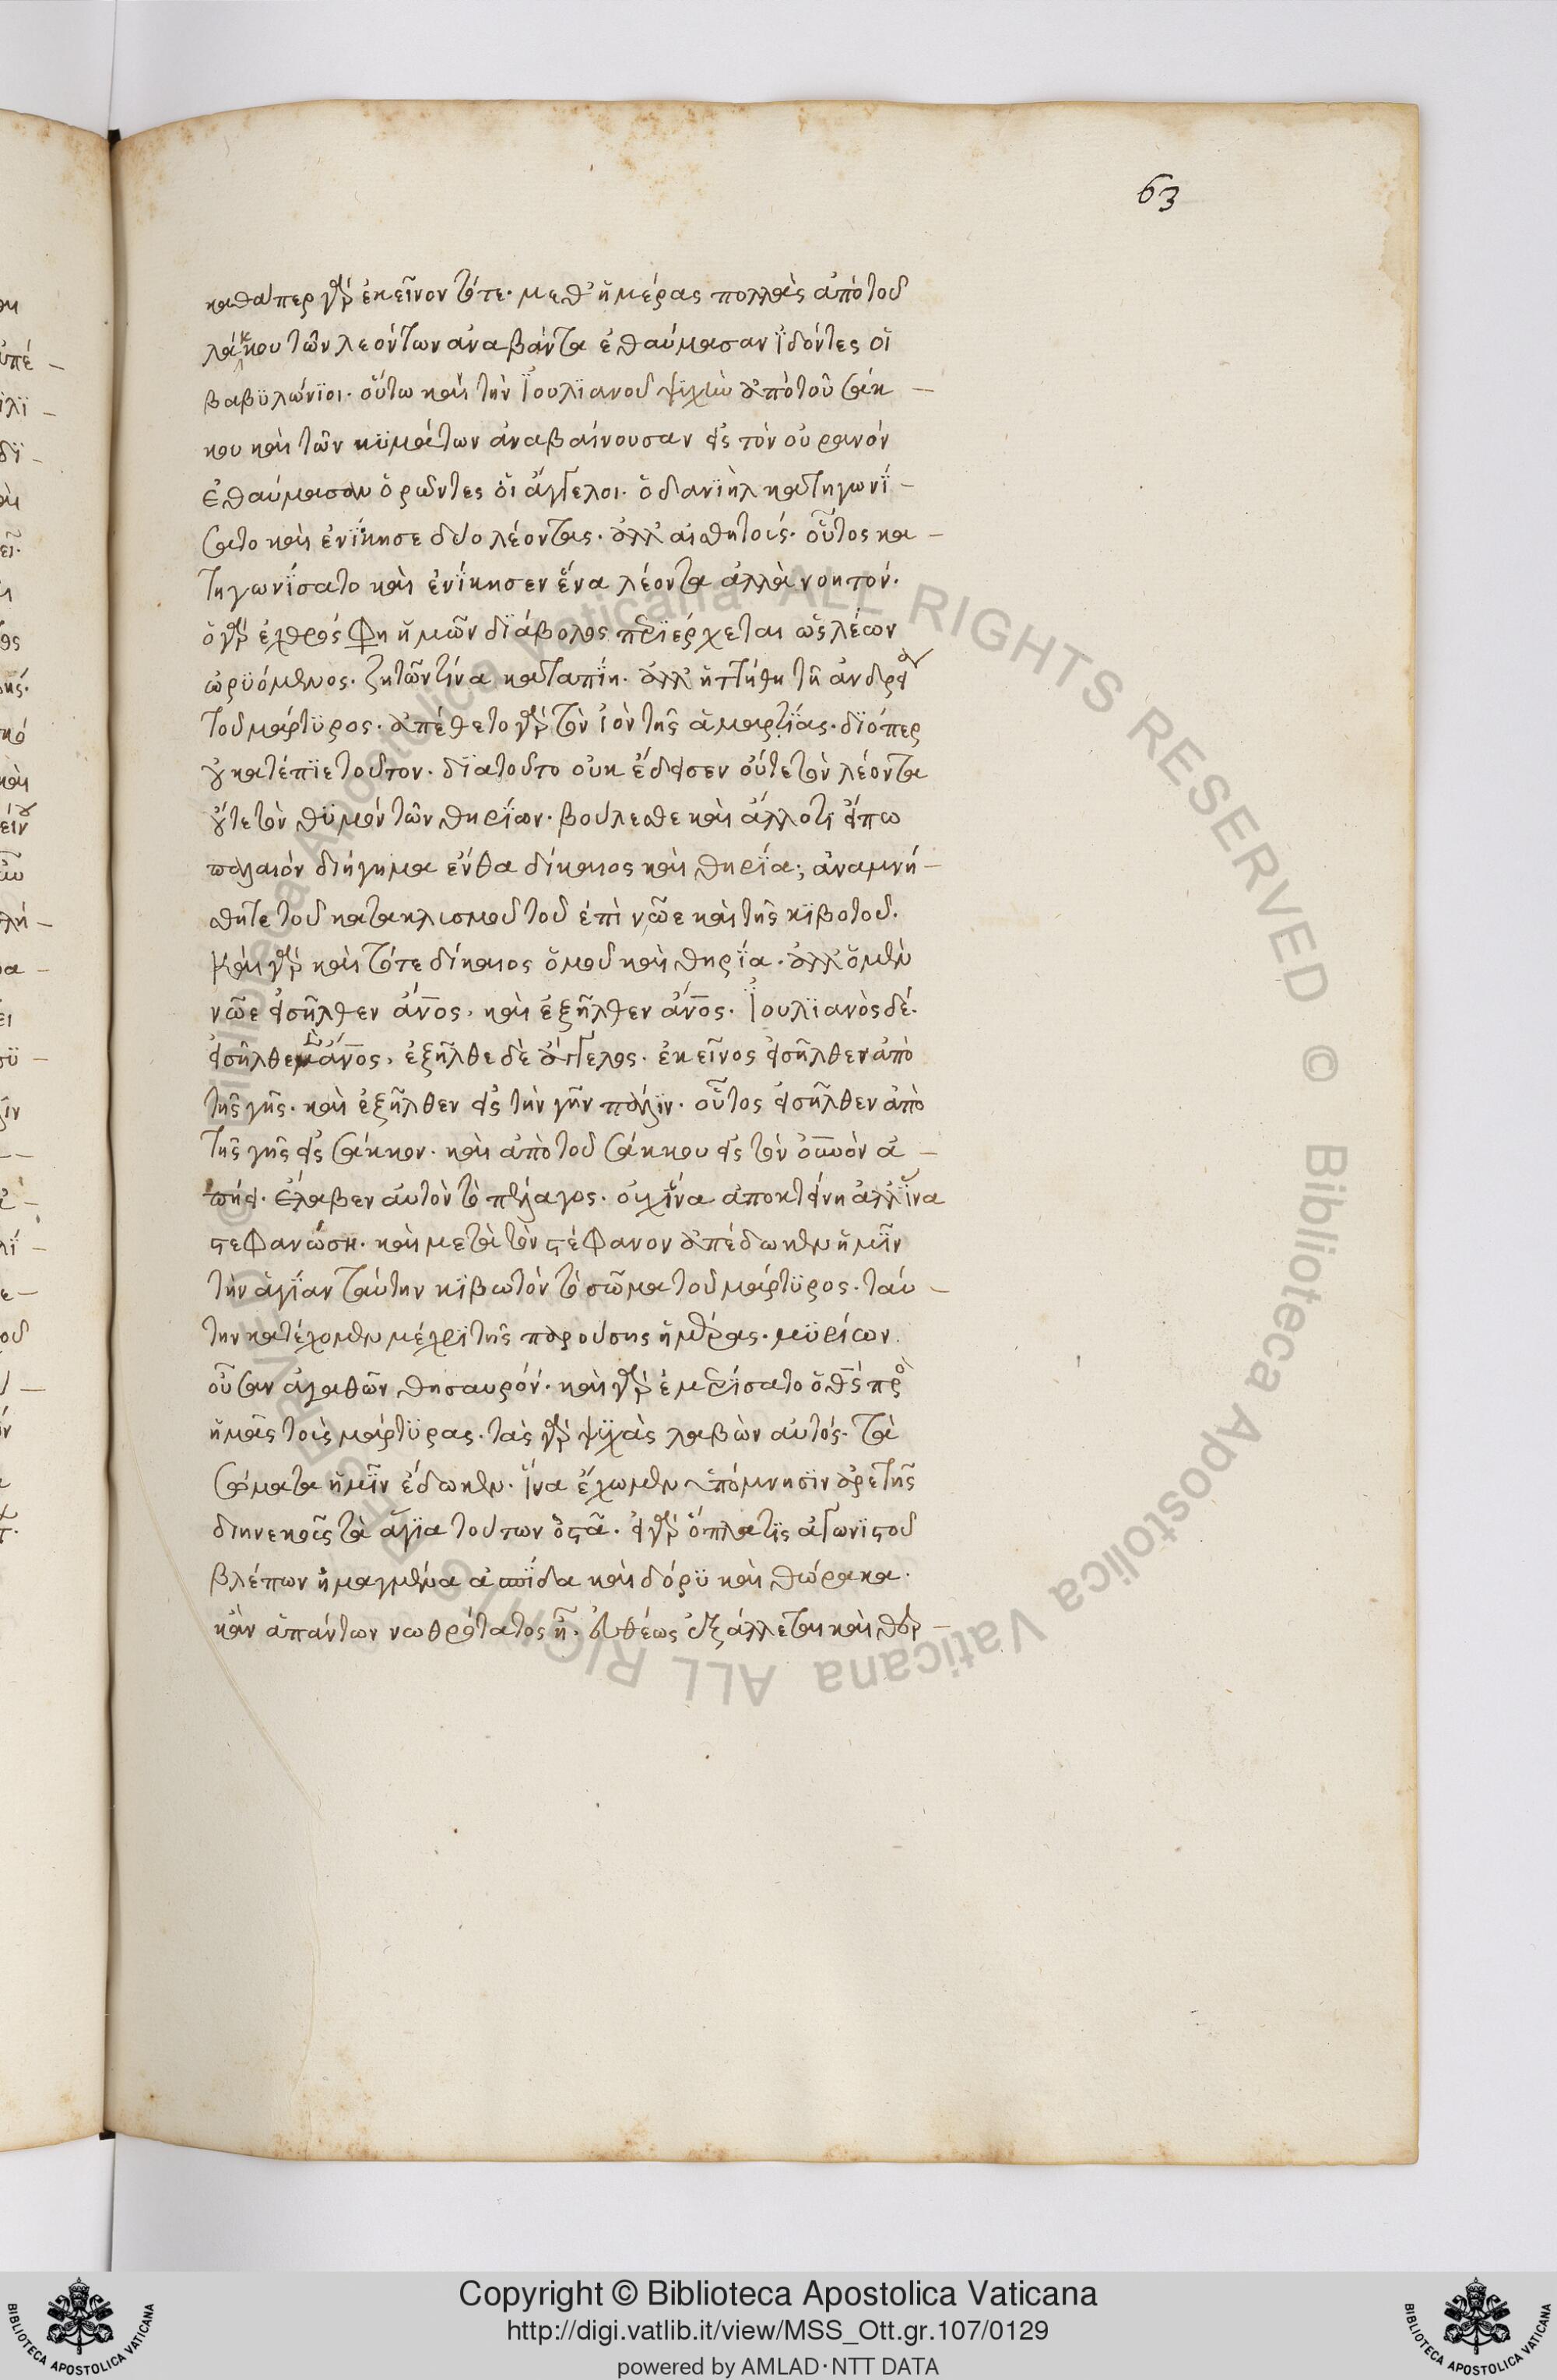 63
καθάπερ γὰρ ἐκεῖνον τότε· μεθ' ἡμέρας πολλὰς ἀπὸ τοῦ
λάκκου τῶν λεόντων ἀναβάντα ἐθαύμασαν ἰδόντες οἱ
βαβϋλώνϊοι· οὕτω καὶ τὴν Ἰουλϊανοῦ ψϋχὴν ἀπὸ τοῦ σάκ –
κου καὶ τῶν κϋμάτων ἀναβαίνουσαν εἰς τὸν οὐρανόν
ἐθαύμασαν ὁρῶντες οἱ ἄγγελοι· ὁ δανϊὴλ κατηγωνΐ –
σατο καὶ ἐνΐκησε δύο λέοντας· ἀλλ' αἰσθητοίς· οὗτος κα –
τηγωνΐσατο καὶ ἐνΐκησεν ἕνα λέοντα ἀλλὰ νοητόν·
ὁ γὰρ ἐχθρός φη ἡμῶν δϊάβολος περϊέρχεται ὡς λέων
ὠρϋόμενος· ζητῶν τίνα καταπΐη· ἀλλ' ἡττήθη τῇ ἀνδρεία
τοῦ μάρτϋρος· ἀπέθετο γὰρ τὸν ἰὸν τῆς ἁμαρτΐας· δϊόπερ
οὐ κατέπϊε τοῦτον· δϊατοῦτο οὐκ ἔδεισεν οὔτε τὸν λέοντα
οὔτε τὸν θϋμὸν τῶν θηρΐων· βούλεσθε καὶ ἄλλο τι εἴπω
παλαιὸν διήγημα ἔνθα δίκαιος καὶ θηρΐα; ἀναμνή –
σθητε τοῦ κατακλισμοῦ τοῦ ἐπὶ νῶε καὶ τῆς κϊβοτοῦ.
Καὶ γὰρ καὶ τότε δίκαιος ὁμοῦ καὶ θηρΐα· ἀλλ' ὁ μὲν
νῶε εἰσῆλθεν ἄνος, καὶ ἐξῆλθεν ἄνος· Ἰουλϊανὸς δέ·
εἰσῆλθε μὲν ἄνος, ἐξῆλθε δὲ ἄγγελος· ἐκεῖνος εἰσῆλθεν ἀπὸ
τῆς γῆς· καὶ ἐξῆλθεν εἰς τὴν γῆν πάλϊν· οὗτος εἰσῆλθεν ἀπὸ
τῆς γῆς εἰς σάκκον· καὶ ἀπὸ τοῦ σάκκου εἰς τὸν οὐνὸν ἀ –
πήει· ἔλαβεν αὐτὸν τὸ πέλαγος· οὐχ ἵνα ἀποκτείνη ἀλλ' ἵνα
στεφανώση· καὶ μετὰ τὸν στέφανον ἀπέδωκεν ἡμῖν
τὴν ἁγΐαν ταύτην κϊβωτόν τὸ σῶμα τοῦ μάρτϋρος· ταύ –
την κατέχομεν μέχρϊ τῆς παρούσης ἡμέρας· μϋρίων
οὖσαν ἀγαθῶν θησαυρόν· καὶ γὰρ ἐμερΐσατο ὁ θς πρὸς
ἡμᾶς τοὶς μάρτϋρας· τὰς γὰρ ψϋχὰς λαβὼν αὐτός· τὰ
σώματα ἡμῖν ἔδωκεν· ἵνα ἔχωμεν ὑπόμνησϊν ἀρετῆς
διηνεκοῖς τὰ ἅγϊα τούτων ὀστᾶ· εἰ γὰρ ὅπλα τϊς ἀγωνϊστοῦ
βλέπων ἡμαγμένα ἀσπΐδα καὶ δόρϋ καὶ θώρακα·
κἂν ἁπάντων νωθρότατος ἦ· εὐθέως ἐξάλλεται καὶ θερ –